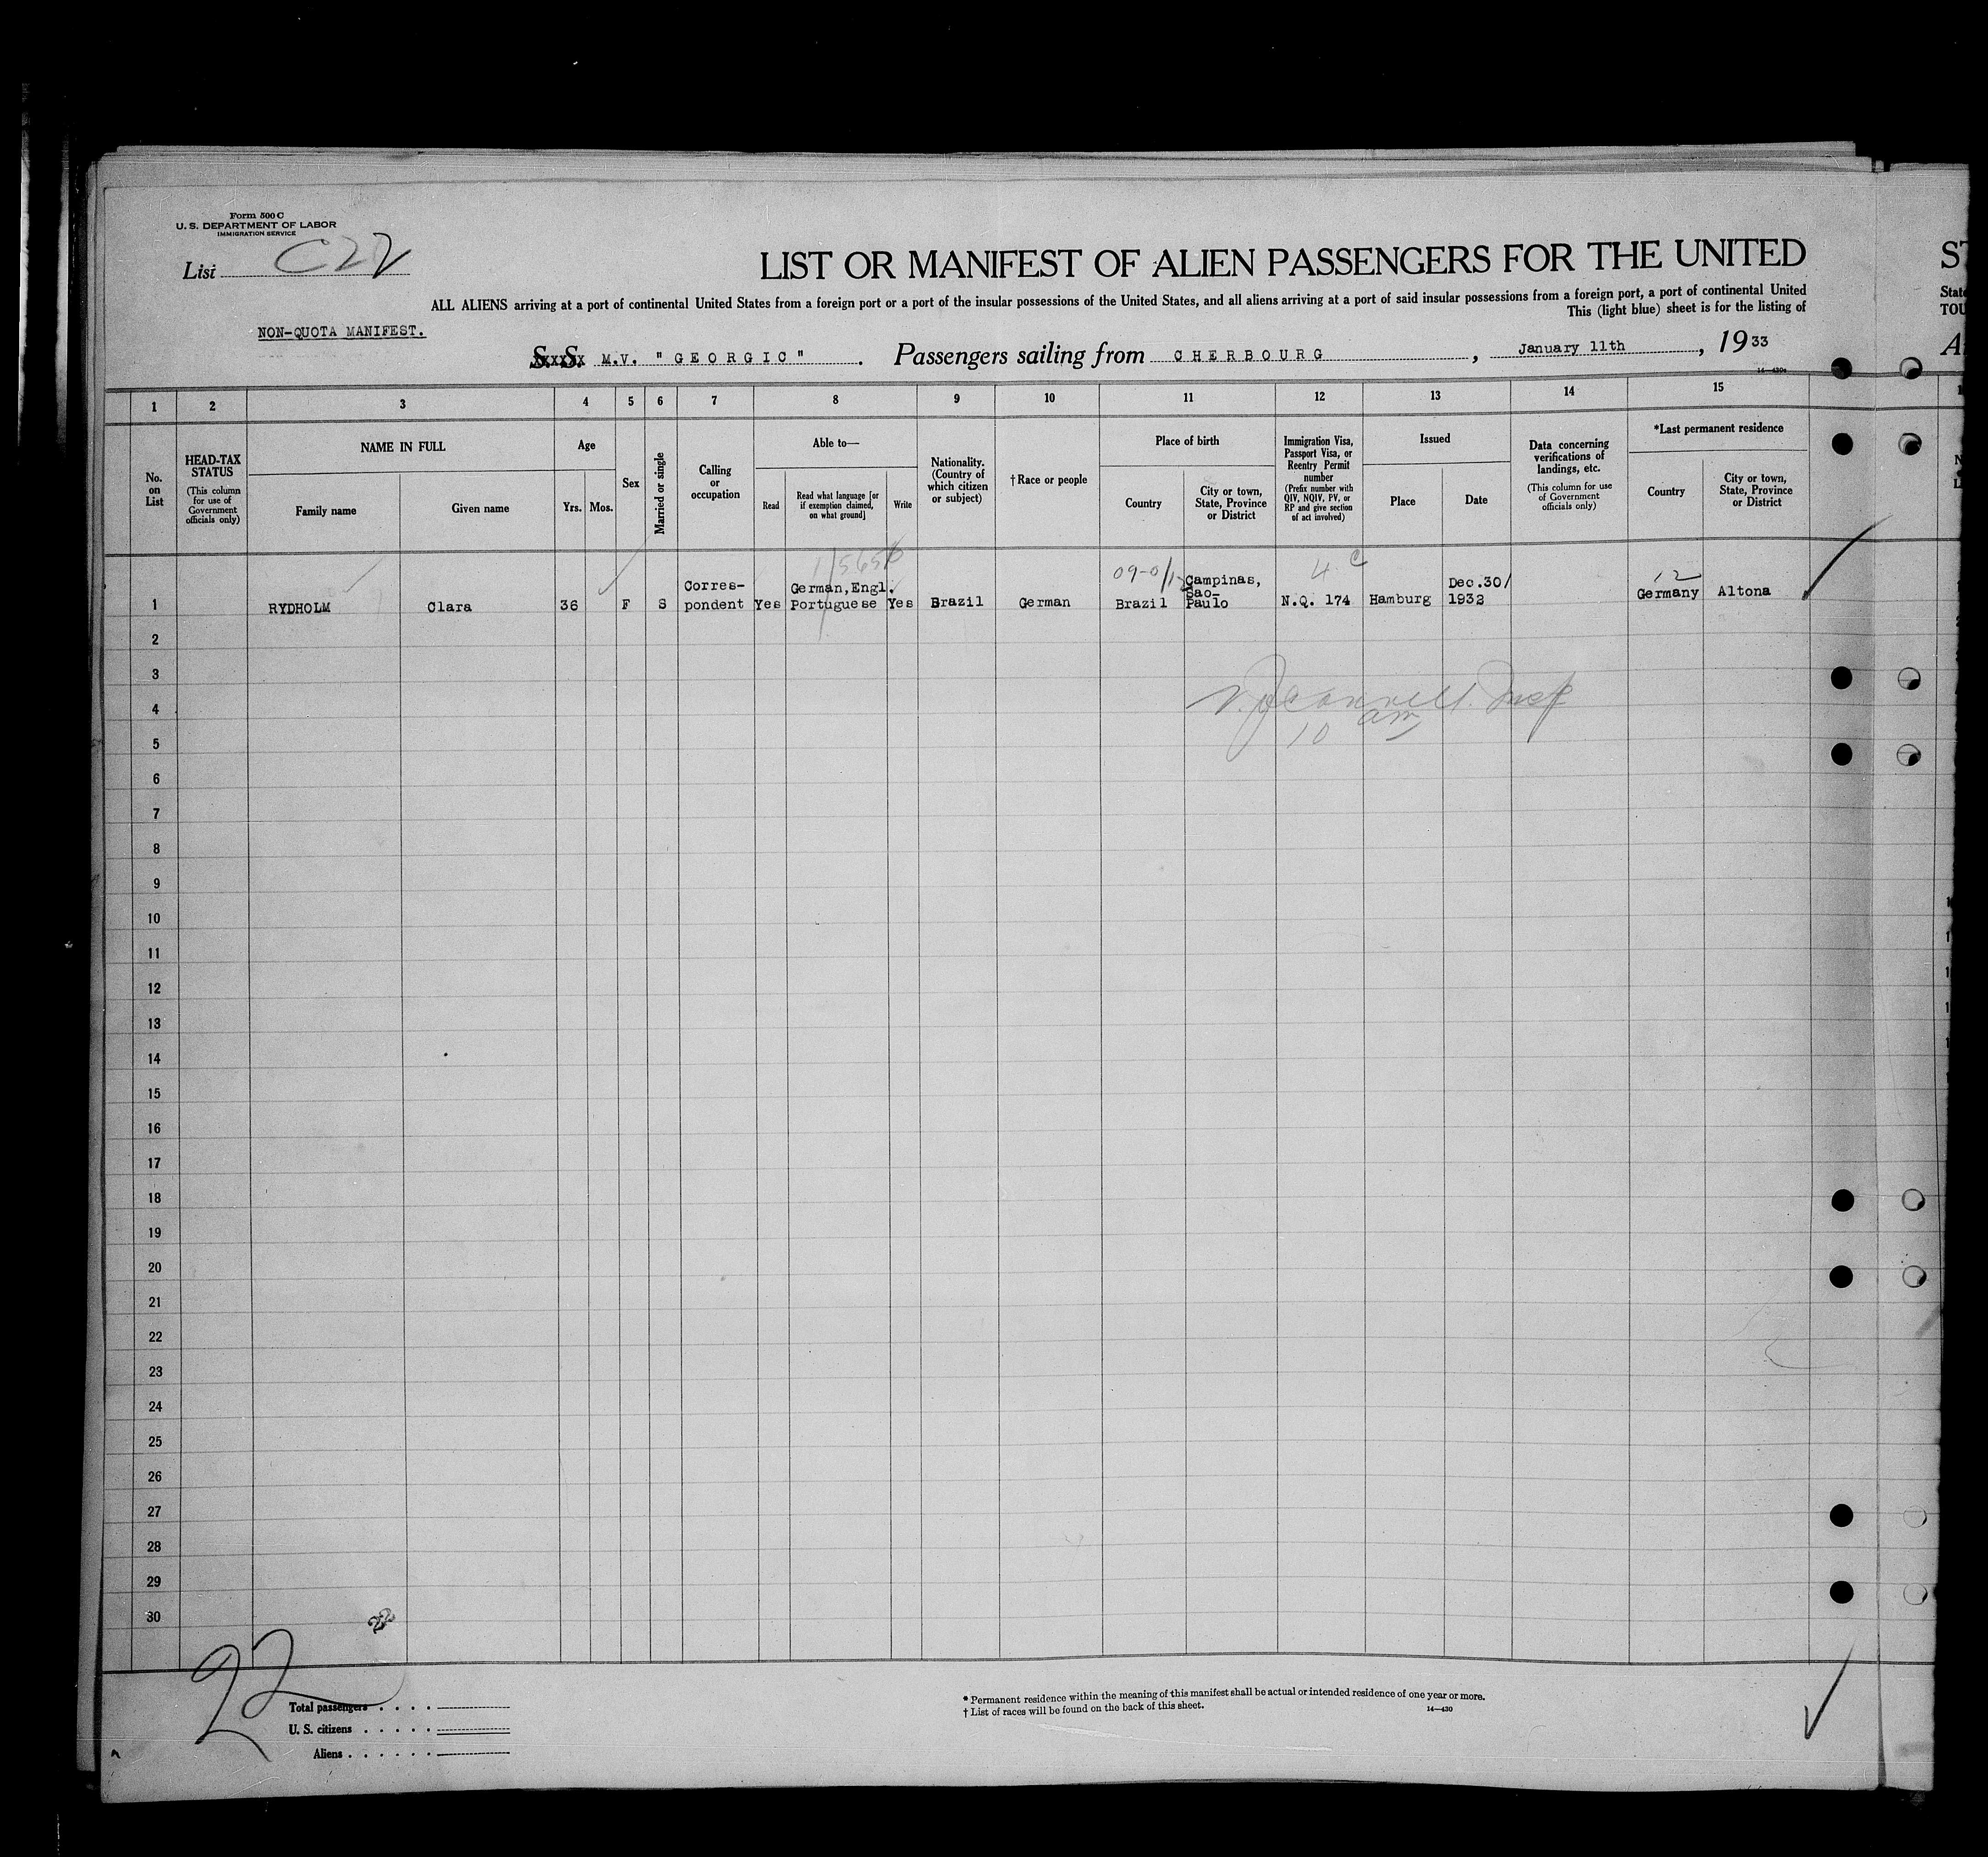 Form 500 C
U. S. DEPARTMENT OF LABOR
IMMIGRATION SERVICE
List C22
LIST OR MANIFEST OF ALIEN PASSENGERS FOR THE UNITED
ST
ALL ALIENS arriving at a port of continental United States from a foreign port or a port of the insular possessions of the United States, and all aliens arriving at a port of said insular possessions from a foreign port, a port of continental United
State
This (light blue) sheet is for the listing of
TOU
NON-QUOTA MANIFEST.
S. S. M.V. "GEORGIC". Passengers sailing from CHERBOURG, January 11th, 1933
1 2 3 4 5 6 7 8 9 10 11 12 13 14 15
No. on List
HEAD-TAX STATUS
(This column for use of Government officials only)
NAME IN FULL
Family name
Given name
Age
Yrs. Mos.
Sex
Married or single
Calling or occupation
Able to—
Read
Read what language [or if exemption claimed, on what ground]
Write
Nationality. (Country of which citizen or subject)
†Race or people
Place of birth
Country
City or town, State, Province or District
Immigration Visa, Passport Visa, or Reentry Permit number
(Prefix number with QIV, NQIV, PV, or RP and give section of act involved)
Issued
Place
Date
Data concerning verifications of landings, etc.
(This column for use of Government officials only)
*Last permanent residence
Country
City or town, State, Province or District
4 C
12
1 RYDHOLM Clara 36 F S Corres-pondent Yes German,Engl. Portuguese Yes Brazil German Brazil Campinas, Sao-Paulo N.Q. 174 Hamburg Dec.30/1932 Germany Altona
2
3
4
10 am
5
6
7
8
9
10
11
12
13
14
15
16
17
18
19
20
21
22
23
24
25
26
27
28
29
30
22
22
Total passengers . . . .
U. S. citizens . . . . .
Aliens . . . . . .
* Permanent residence within the meaning of this manifest shall be actual or intended residence of one year or more.
† List of races will be found on the back of this sheet.
14—430